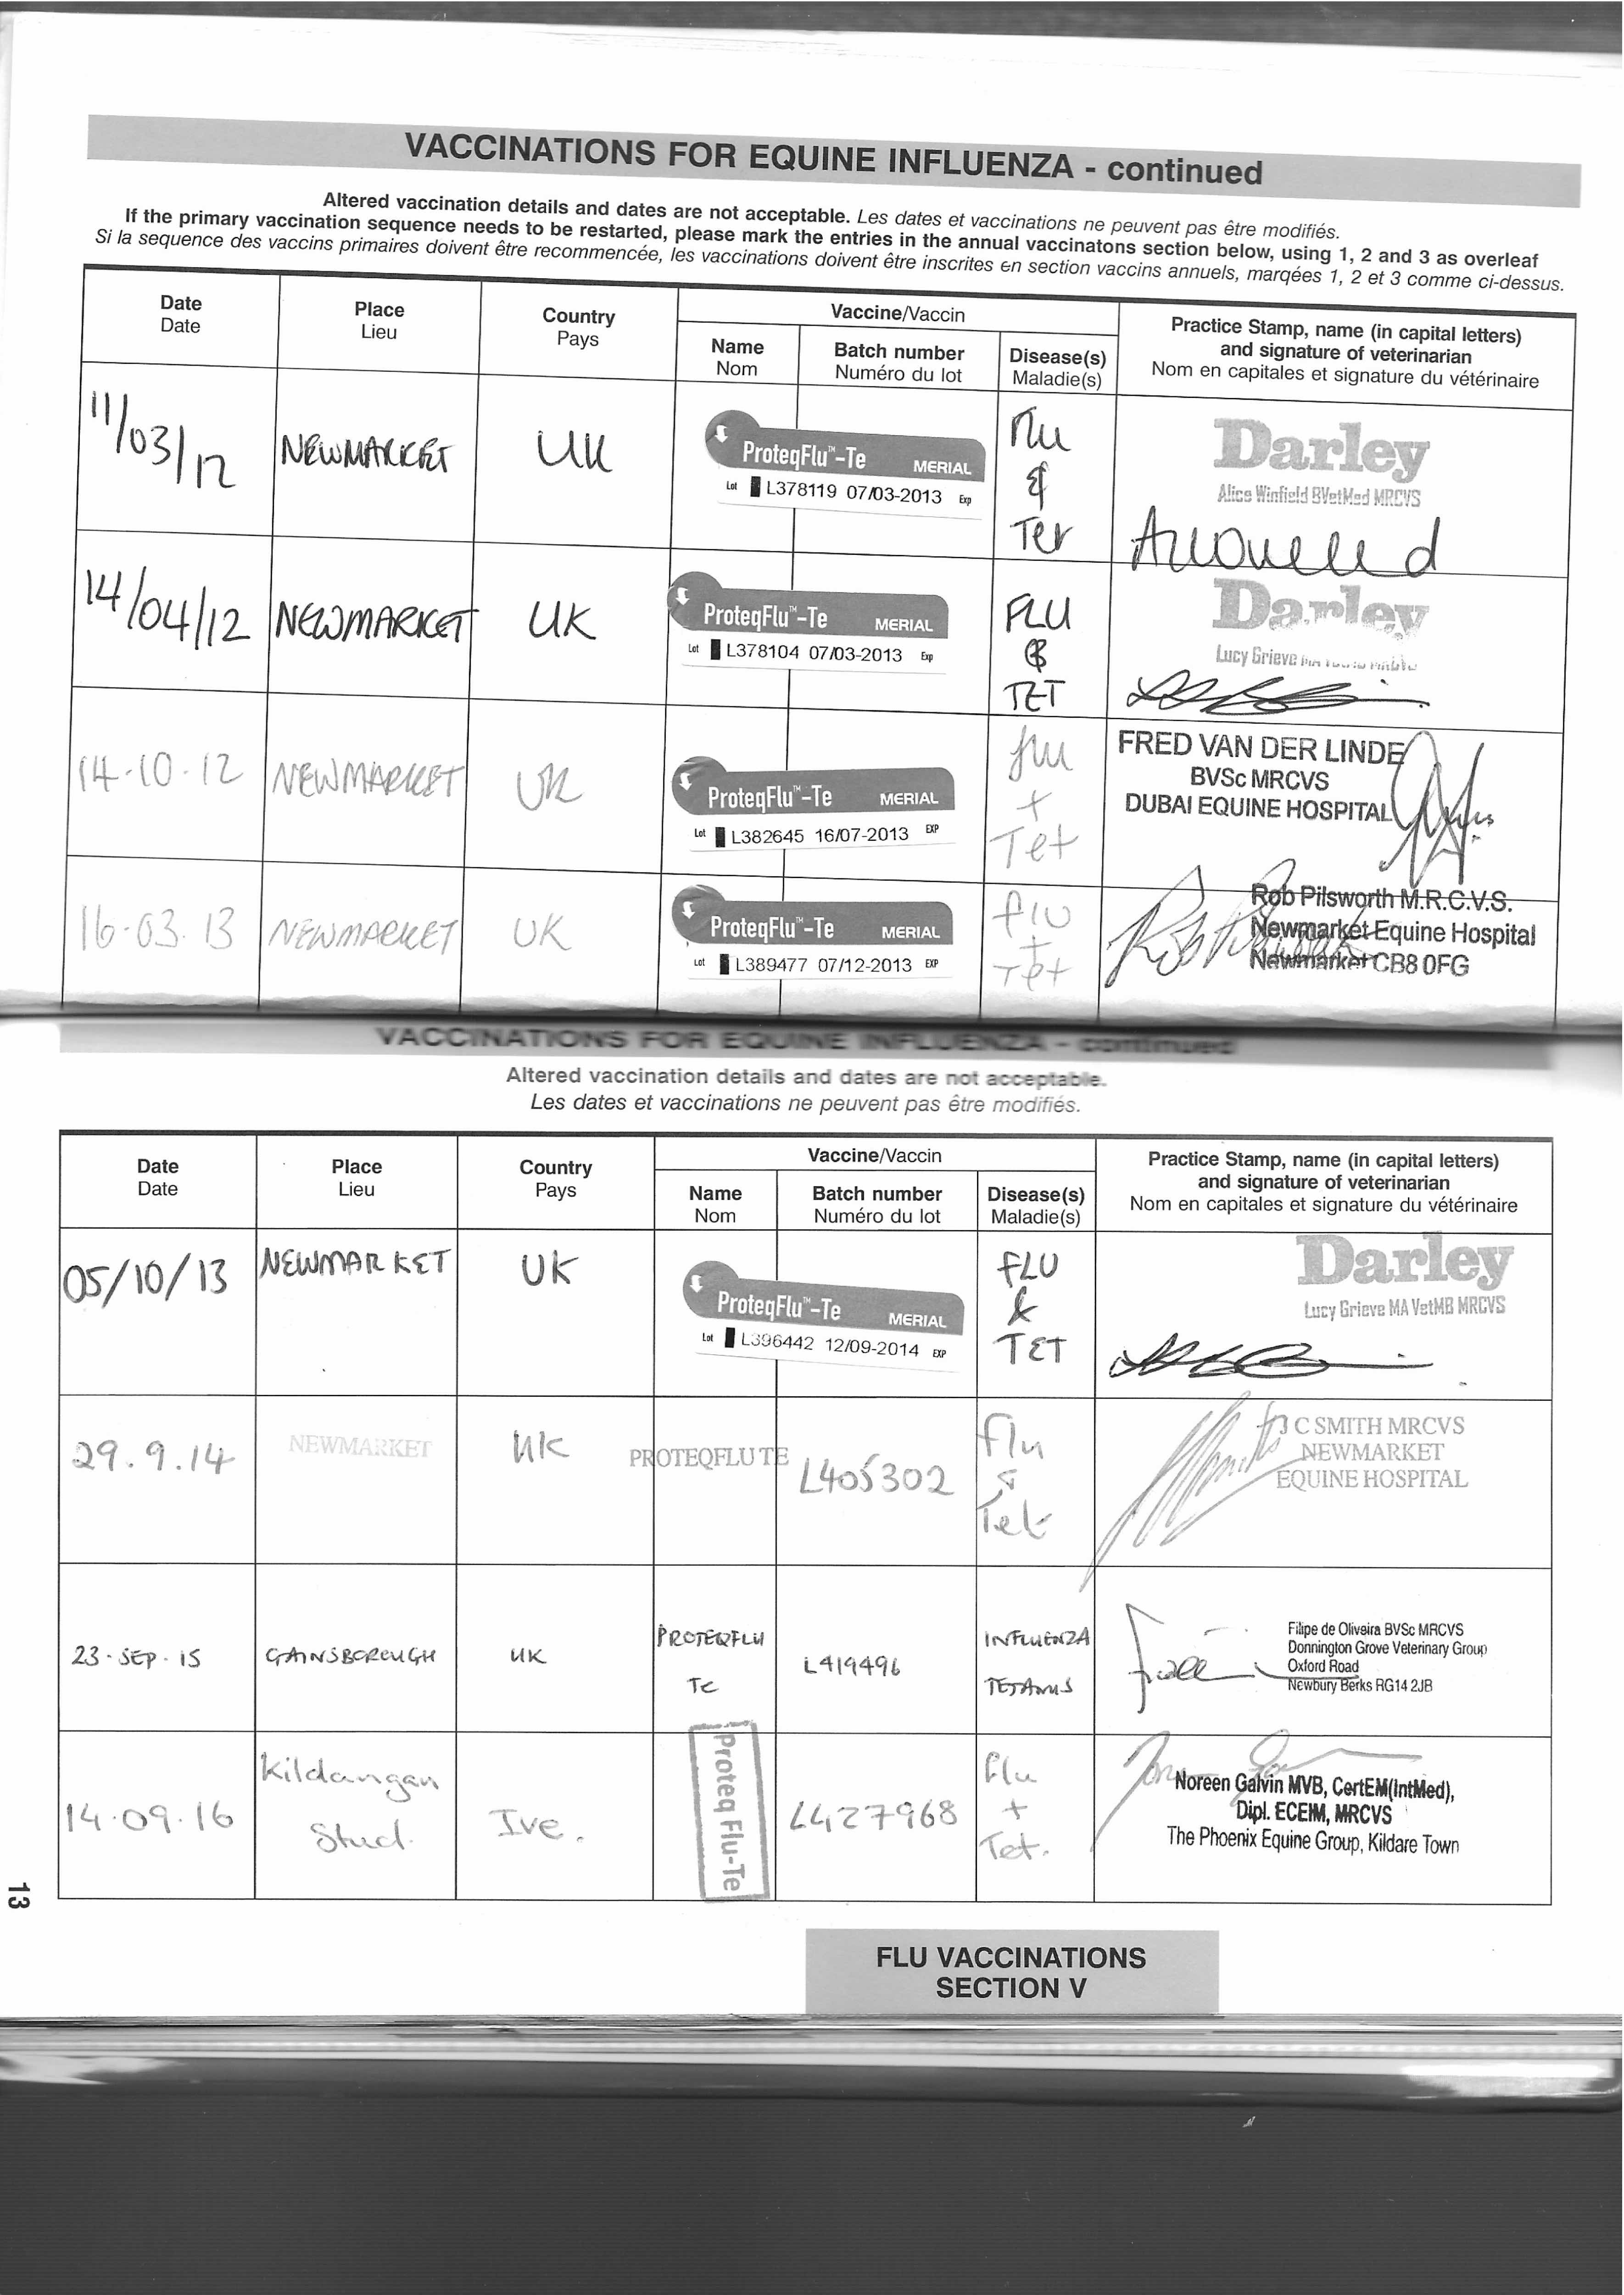 VACCINATIONS FOR EQUINE INFLUENZA - continued
Altered vaccination details and dates are not acceptable. Les dates et vaccinations ne peuvent pas être modifiés.
If the primary vaccination sequence needs to be restarted, please mark the entries in the annual vaccinatons section below, using 1, 2 and 3 as overleaf
Si la sequence des vaccins primaires doivent être recommencée, les vaccinations doivent être inscrites en section vaccins annuels, marqées 1, 2 et 3 comme ci-dessus.
Date
Date
Place
Lieu
Country
Pays
Vaccine/Vaccin
Name
Nom
Batch number
Numéro du lot
Disease(s)
Maladie(s)
Practice Stamp, name (in capital letters)
and signature of veterinarian
Nom en capitales et signature du vétérinaire
11/03/12
NEWMARKET
UK
ProteqFlu™-Te MERIAL
Lot L378119 07/03-2013 Exp
Flu
&
Tet
Darley
Alice Winfield BVetMed MRCVS
14/04/12
NEWMARKET
UK
ProteqFlu™-Te MERIAL
Lot L378104 07/03-2013 Exp
FLU
&
TET
Darley
Lucy Grieve
14-10-12
NEWMARKET
UK
ProteqFlu™-Te MERIAL
Lot L382645 16/07-2013 EXP
flu
+
Tet
FRED VAN DER LINDE
BVSc MRCVS
DUBAI EQUINE HOSPITAL
16-03.13
NEWMARKET
UK
ProteqFlu™-Te MERIAL
Lot L389477 07/12-2013 EXP
flu
+
Tet
Rob Pilsworth M.R.C.V.S.
Newmarket Equine Hospital
Newmarket CB8 0FG
VACCINATIONS FOR EQUINE INFLUENZA - continued
Altered vaccination details and dates are not acceptable.
Les dates et vaccinations ne peuvent pas être modifiés.
Date
Date
Place
Lieu
Country
Pays
Vaccine/Vaccin
Name
Nom
Batch number
Numéro du lot
Disease(s)
Maladie(s)
Practice Stamp, name (in capital letters)
and signature of veterinarian
Nom en capitales et signature du vétérinaire
05/10/13
NEWMARKET
UK
ProteqFlu™-Te MERIAL
Lot L396442 12/09-2014 EXP
FLU
&
TET
Darley
Lucy Grieve MA VetMB MRCVS
29.9.14
NEWMARKET
UK
PROTEQFLU TE
L405302
Flu
&
Tet
J C SMITH MRCVS
NEWMARKET
EQUINE HOSPITAL
23-SEP-15
GAINSBOROUGH
UK
PROTEQFLU
TE
L419496
INFLUENZA
TETANUS
Filipe de Oliveira BVSc MRCVS
Donnington Grove Veterinary Group
Oxford Road
Newbury Berks RG14 2JB
14.09.16
Kildangan
Stud.
Ire.
Proteq Flu-Te
L427968
Flu
+
Tet.
Noreen Galvin MVB, CertEM(IntMed),
Dipl. ECEIM, MRCVS
The Phoenix Equine Group, Kildare Town
13
FLU VACCINATIONS
SECTION V